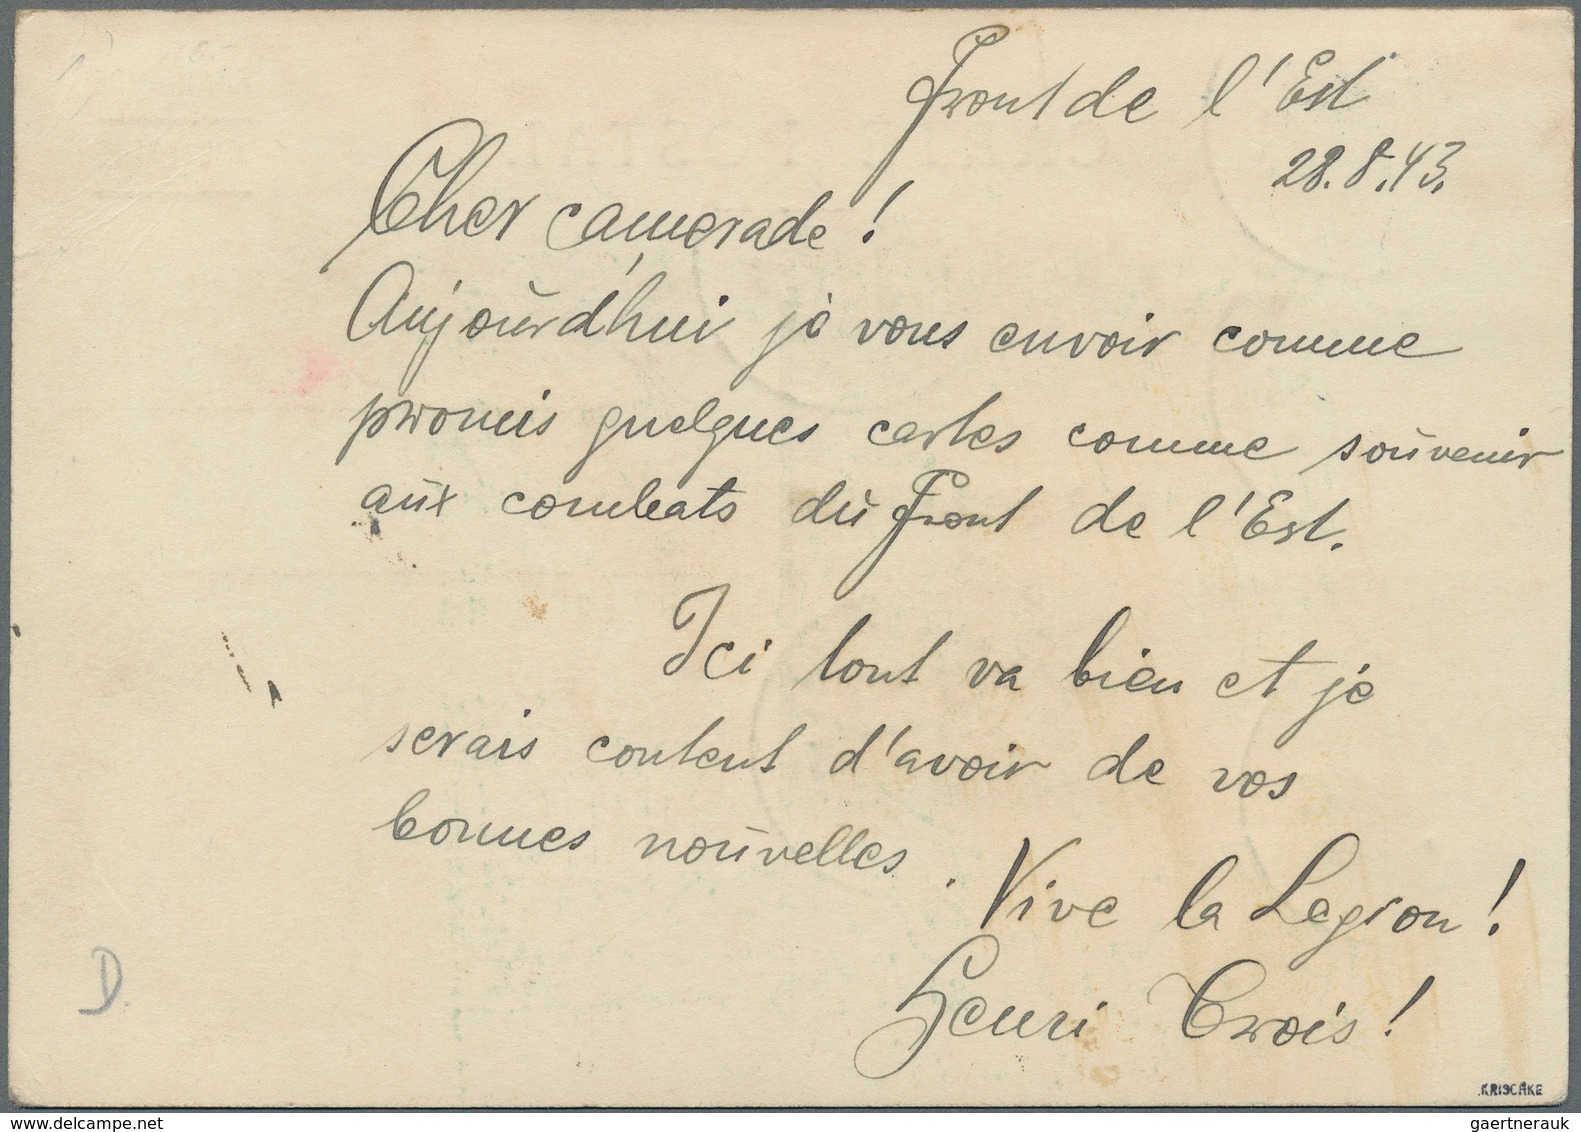 Front de l'Est
28.8.43.
Cher camerade!
Aujoürd'hui je vous envoir comme
promis quelques cartes comme soüvenir
aüx combats dü Front de l'Est.
Ici tout va bien et je
serais content d'avoir de vos
bonnes noüvelles.
Vive la Legion!
Henri Trois!
D.
KRISCHKE
gaertnerauk